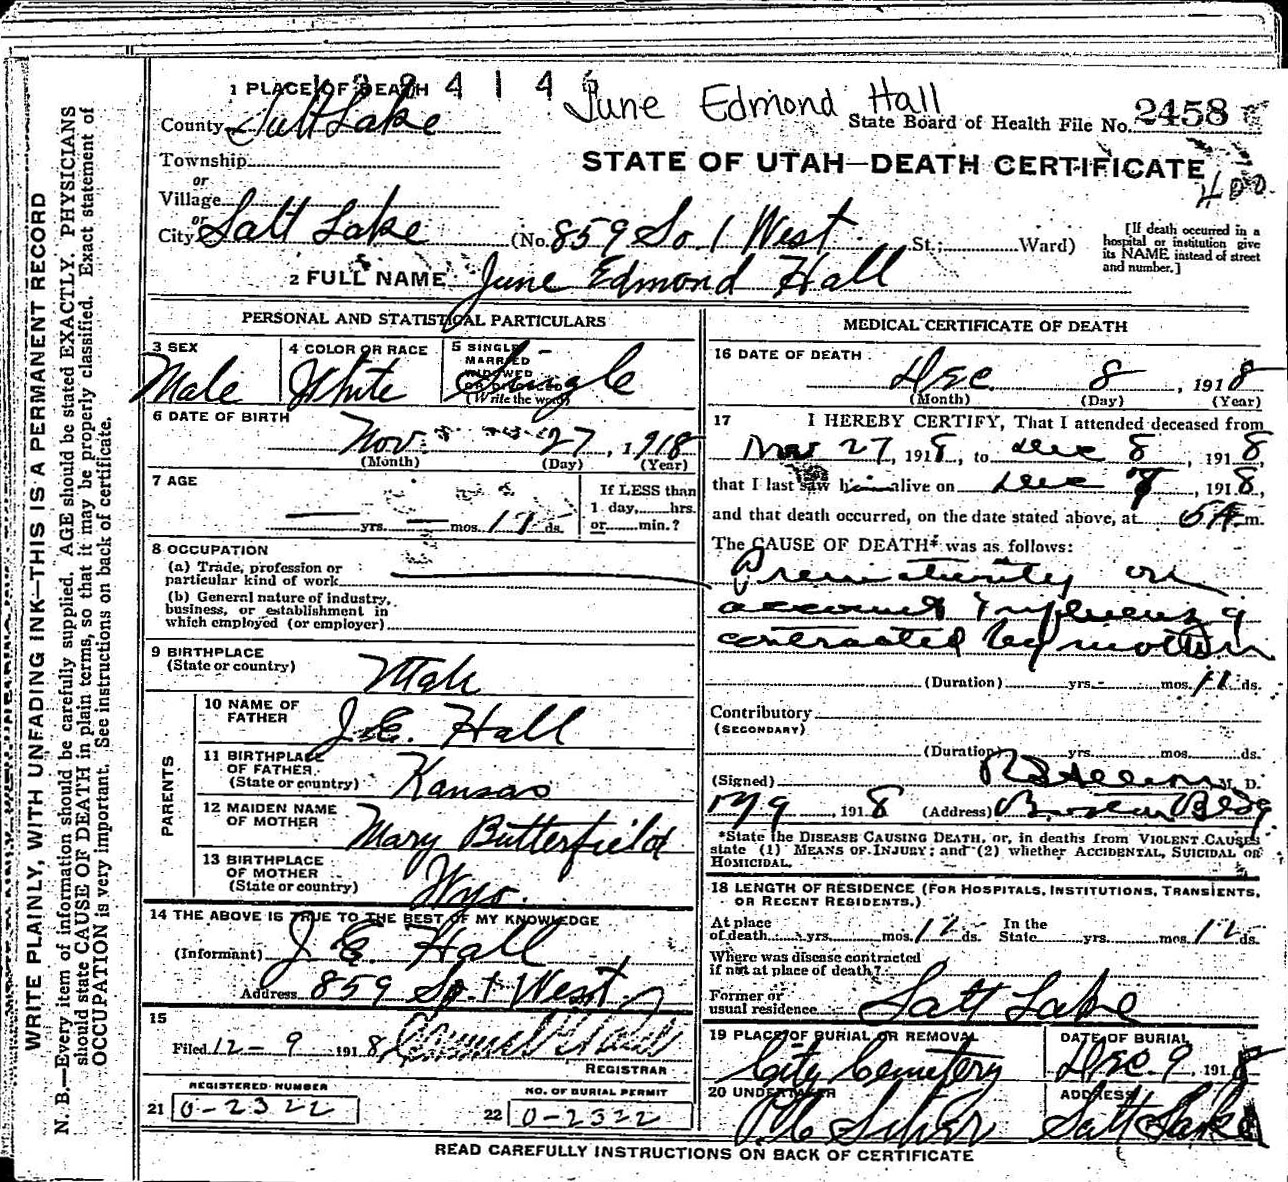 1 PLACE OF DEATH
June Edmond Hall
County Salt Lake
State Board of Health File No. 2458
Township
STATE OF UTAH—DEATH CERTIFICATE
or
400
Village
or
City Salt Lake (No. 859 So. 1 West St.; Ward)
[If death occurred in a hospital or institution give its NAME instead of street and number.]
2 FULL NAME June Edmond Hall
PERSONAL AND STATISTICAL PARTICULARS
3 SEX
Male
4 COLOR OR RACE
White
5 SINGLE
MARRIED
WIDOWED
OR DIVORCED
(Write the word)
Single
6 DATE OF BIRTH
Nov. 27, 1918
(Month) (Day) (Year)
7 AGE
yrs. mos. 11 ds.
If LESS than
1 day, hrs.
or min.?
8 OCCUPATION
(a) Trade, profession or
particular kind of work
(b) General nature of industry,
business, or establishment in
which employed (or employer)
9 BIRTHPLACE
(State or country)
Utah
PARENTS
10 NAME OF
FATHER
J. E. Hall
11 BIRTHPLACE
OF FATHER
(State or country)
Kansas
12 MAIDEN NAME
OF MOTHER
Mary Butterfield
13 BIRTHPLACE
OF MOTHER
(State or country)
Wyo.
14 THE ABOVE IS TRUE TO THE BEST OF MY KNOWLEDGE
(Informant) J. E. Hall
Address 859 So. 1 West
15
Filed 12-9 1918
REGISTRAR
REGISTERED NUMBER
21 0-2322
NO. OF BURIAL PERMIT
22 0-2322
MEDICAL CERTIFICATE OF DEATH
16 DATE OF DEATH
Dec 8, 1918
(Month) (Day) (Year)
17 I HEREBY CERTIFY, That I attended deceased from
Nov 27, 1918, to Dec 8, 1918,
that I last saw him alive on Dec 7, 1918,
and that death occurred, on the date stated above, at 5 A m.
The CAUSE OF DEATH* was as follows:
Prematurity on
account Influenza
contracted by mother
(Duration) yrs. mos. 11 ds.
Contributory
(SECONDARY)
(Duration) yrs. mos. ds.
(Signed) M. D.
12/9 1918 (Address) Boston Bldg
*State the DISEASE CAUSING DEATH, or, in deaths from VIOLENT CAUSES
state (1) MEANS OF INJURY; and (2) whether ACCIDENTAL, SUICIDAL OR
HOMICIDAL.
18 LENGTH OF RESIDENCE (FOR HOSPITALS, INSTITUTIONS, TRANSIENTS,
OR RECENT RESIDENTS.)
At place
of death yrs. mos. 12 ds.
In the
State yrs. mos. 12 ds.
Where was disease contracted
if not at place of death?
Former or
usual residence Salt Lake
19 PLACE OF BURIAL OR REMOVAL
City Cemetery
DATE OF BURIAL
Dec. 9, 1918
20 UNDERTAKER
ADDRESS
Salt Lake
READ CAREFULLY INSTRUCTIONS ON BACK OF CERTIFICATE
WRITE PLAINLY, WITH UNFADING INK—THIS IS A PERMANENT RECORD
N. B.—Every item of information should be carefully supplied. AGE should be stated EXACTLY. PHYSICIANS
should state CAUSE OF DEATH in plain terms, so that it may be properly classified. Exact statement of
OCCUPATION is very important. See instructions on back of certificate.